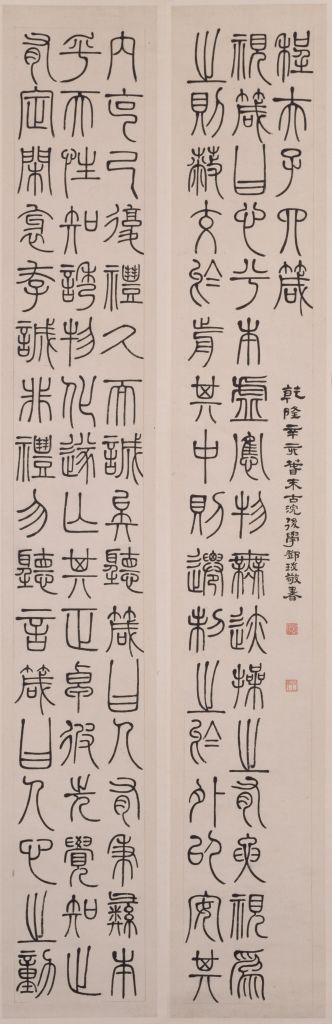 程夫子四箴
乾隆辛亥旾末古浣後學鄧琰敬書
視箴曰心兮本虛應物無迹操之有要視爲
之則蔽交於前其中則遷制之於外以安其
内克己復禮久而誠矣聽箴曰人有秉彝本
乎天性知誘物化遂亡其正卓彼先覺知止
有定閑邪存誠非禮勿聽言箴曰人心之動